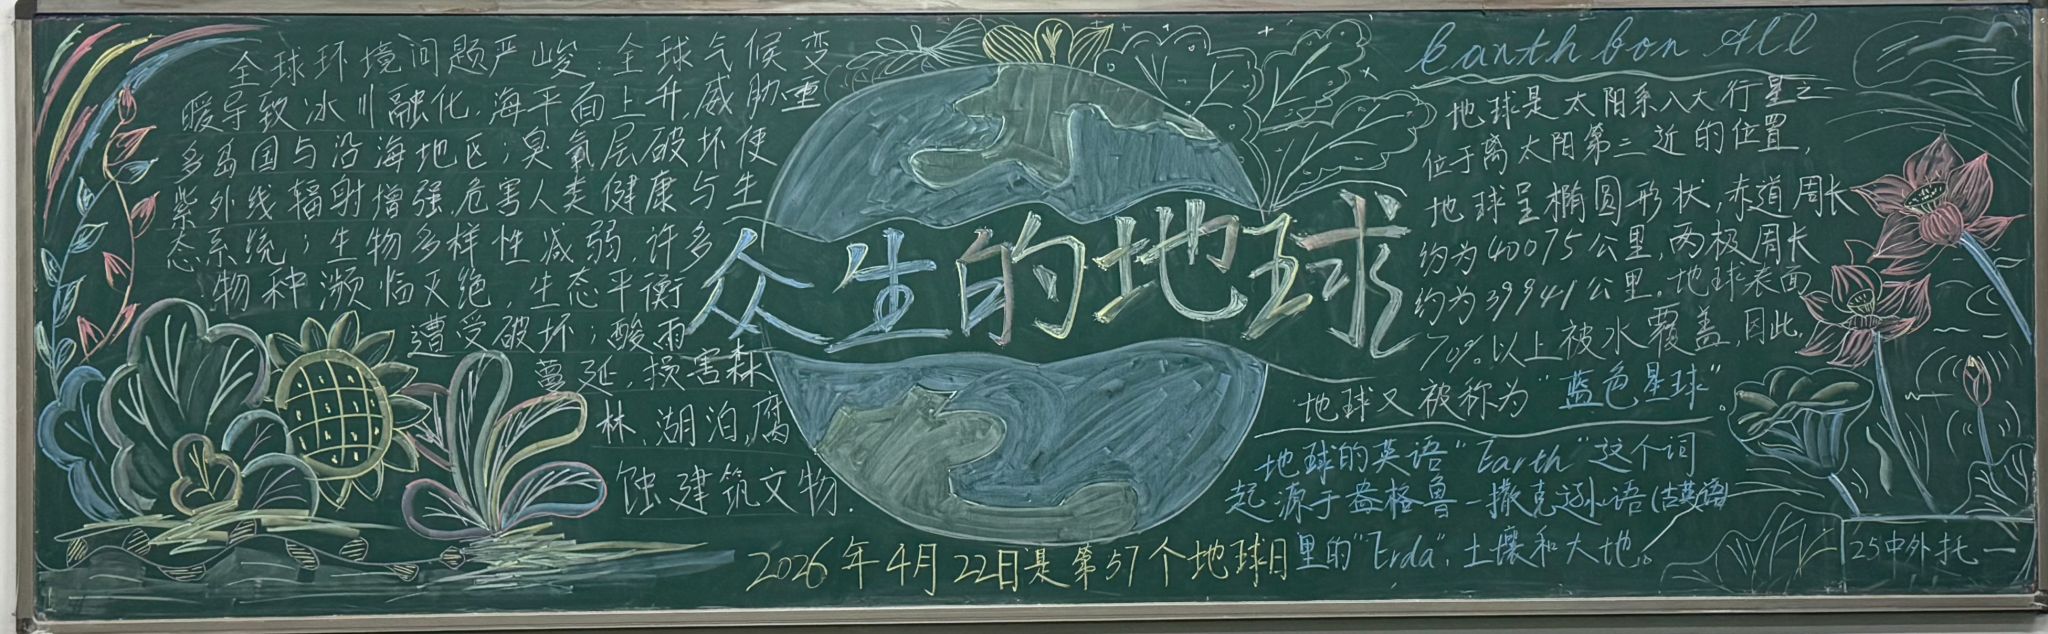 全球环境问题严峻:全球气候变
暖导致冰川融化,海平面上升,威胁重
多岛国与沿海地区;臭氧层破坏使
紫外线辐射增强,危害人类健康与生
态系统;生物多样性减弱,许多
物种濒临灭绝,生态平衡
遭受破坏;酸雨
蔓延,损害森
林,湖泊,腐
蚀建筑文物.
众生的地球
2026年4月22日是第57个地球日
Earth for All
地球是太阳系八大行星之一
位于离太阳第三近的位置,
地球呈椭圆形状,赤道周长
约为40075公里,两极周长
约为39941公里。地球表面
70%以上被水覆盖,因此,
地球又被称为"蓝色星球"。
地球的英语"Earth"这个词
起源于盎格鲁一撒克逊语(古英语)
里的"Erda",土壤和大地。
25中外托一